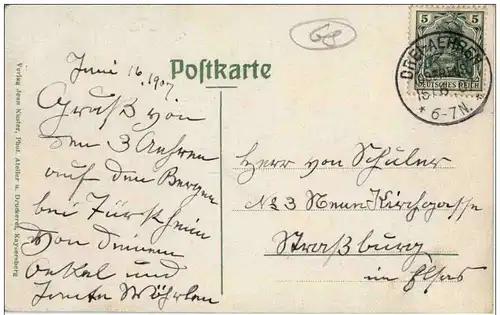 68
5 5
DEUTSCHES REICH
DREI-AEHREN
* 6-7N. *
Postkarte
Juni 16. 1907
Gruß von
den 3 Aehren
auf den Bergen
bei Türkheim
Von deinem
Onkel und
Tante Wöhrlen
Herr von Schuler
No 3 Neue Kirchgasse
Straßburg
im Elsas
Verlag Jean Kuster, Phot. Atelier u. Druckerei, Kaysersberg